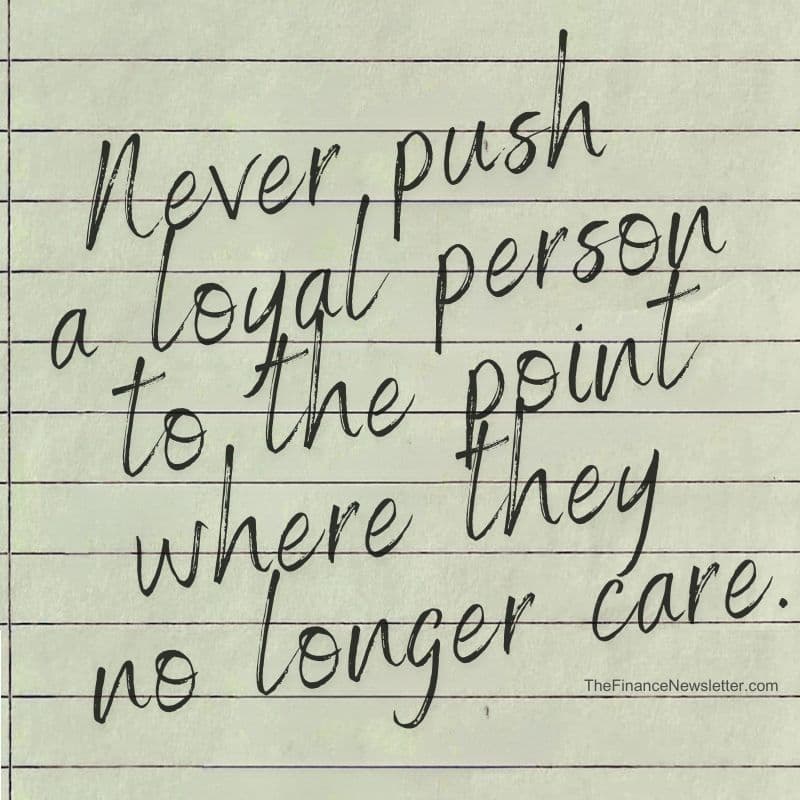 Never push
a loyal person
to the point
where they
no longer care.
TheFinanceNewsletter.com